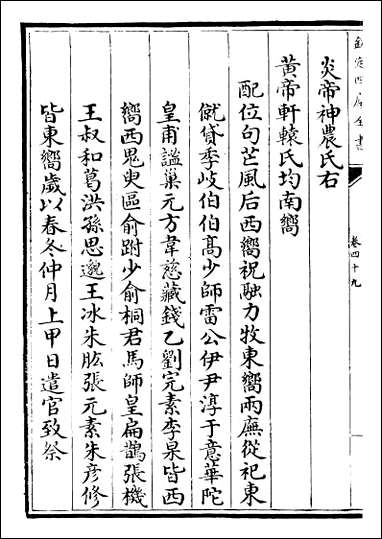 欽定四庫全書
卷四十九
炎帝神農氏右
黄帝軒轅氏均南嚮
配位句芒風后西嚮祝融力牧東嚮兩廡從祀東
僦貸季岐伯伯髙少師雷公伊尹淳于意華陀
皇甫謐巢元方韋慈藏錢乙劉完素李杲皆西
嚮西鬼臾區俞跗少俞桐君馬師皇扁鵲張機
王叔和葛洪孫思邈王冰朱肱張元素朱彦修
皆東嚮歲以春冬仲月上甲日遣官致祭